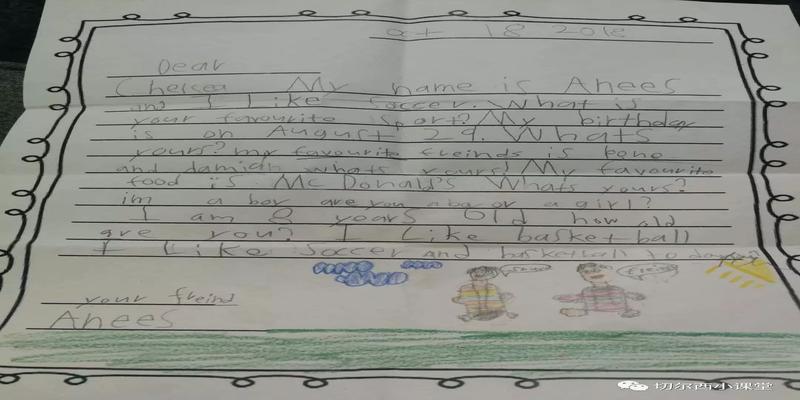 oct 18 2018
Dear
Chelsea My name is Anees
and I Like Soccer. What is
your favourite sport? My birthday
is on August 29. Whats
yours? my favourite freinds is
and damian whats yours? My favourite
food is McDonald's Whats yours?
im a boy are you a boy or a girl?
I am 8 years Old how old
are you? I Like basketball
I Like Soccer and basketball
your freind
Anees
切尔西小课堂